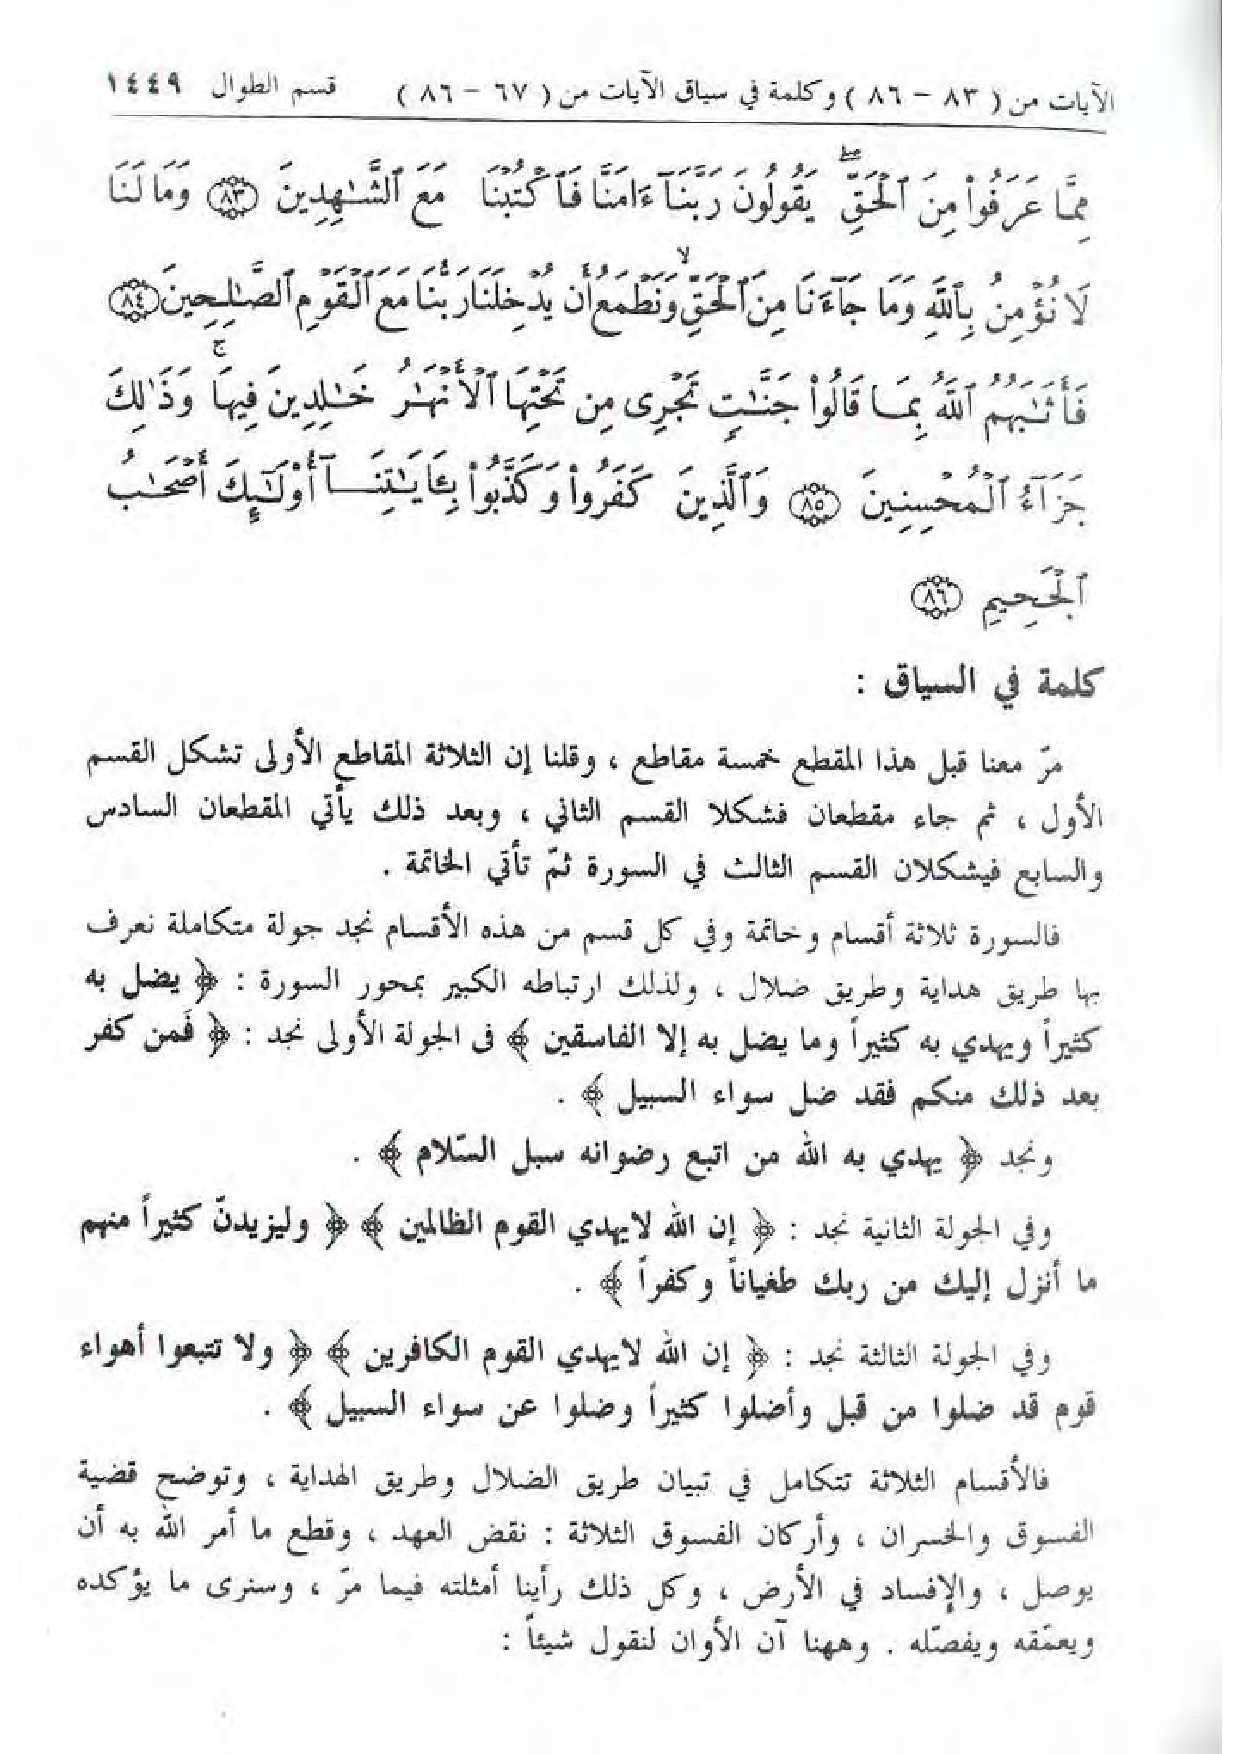 الآيات من ( ٨٣ - ٨٦ ) وكلمة في سياق الآيات من ( ٦٧ - ٨٦ ) قسم الطوال ١٤٤٩
مِمَّا عَرَفُوا۟ مِنَ ٱلْحَقِّ ۖ يَقُولُونَ رَبَّنَآ ءَامَنَّا فَٱكْتُبْنَا مَعَ ٱلشَّـٰهِدِينَ ﴿٨٣﴾ وَمَا لَنَا
لَا نُؤْمِنُ بِٱللَّهِ وَمَا جَآءَنَا مِنَ ٱلْحَقِّ ۙ وَنَطْمَعُ أَن يُدْخِلَنَا رَبُّنَا مَعَ ٱلْقَوْمِ ٱلصَّـٰلِحِينَ ﴿٨٤﴾
فَأَثَـٰبَهُمُ ٱللَّهُ بِمَا قَالُوا۟ جَنَّـٰتٍ تَجْرِى مِن تَحْتِهَا ٱلْأَنْهَـٰرُ خَـٰلِدِينَ فِيهَا ۚ وَذَٰلِكَ
جَزَآءُ ٱلْمُحْسِنِينَ ﴿٨٥﴾ وَٱلَّذِينَ كَفَرُوا۟ وَكَذَّبُوا۟ بِـَٔايَـٰتِنَآ أُو۟لَـٰٓئِكَ أَصْحَـٰبُ
ٱلْجَحِيمِ ﴿٨٦﴾
كلمة في السياق :
مرّ معنا قبل هذا المقطع خمسة مقاطع ، وقلنا إن الثلاثة المقاطع الأولى تشكل القسم
الأول ، ثم جاء مقطعان فشكلا القسم الثاني ، وبعد ذلك يأتي المقطعان السادس
والسابع فيشكلان القسم الثالث في السورة ثمّ تأتي الخاتمة .
فالسورة ثلاثة أقسام وخاتمة وفي كل قسم من هذه الأقسام نجد جولة متكاملة نعرف
بها طريق هداية وطريق ضلال ، ولذلك ارتباطه الكبير بمحور السورة : ﴿ يضل به
كثيراً ويهدي به كثيراً وما يضل به إلا الفاسقين ﴾ فى الجولة الأولى نجد : ﴿ فَمن كفر
بعد ذلك منكم فقد ضل سواء السبيل ﴾ .
ونجد ﴿ يهدي به الله من اتبع رضوانه سبل السّلام ﴾ .
وفي الجولة الثانية نجد : ﴿ إن الله لايهدي القوم الظالمين ﴾ ﴿ وليزيدنّ كثيراً منهم
ما أنزل إليك من ربك طغياناً وكفراً ﴾ .
وفي الجولة الثالثة نجد : ﴿ إن الله لايهدي القوم الكافرين ﴾ ﴿ ولا تتبعوا أهواء
قوم قد ضلوا من قبل وأضلوا كثيراً وضلوا عن سواء السبيل ﴾ .
فالأقسام الثلاثة تتكامل في تبيان طريق الضلال وطريق الهداية ، وتوضح قضية
الفسوق والخسران ، وأركان الفسوق الثلاثة : نقض العهد ، وقطع ما أمر الله به أن
يوصل ، والإفساد في الأرض ، وكل ذلك رأينا أمثلته فيما مرّ ، وسنرى ما يؤكده
ويعمّقه ويفصّله . وههنا آن الأوان لنقول شيئاً :